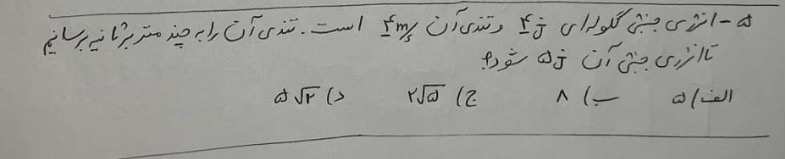 ۵- انرژی جنبشی گلوله‌ای ۴j و تندی آن ۴m/s است. تندی آن را به چند متر بر ثانیه برسانیم
تا انرژی جنبشی آن ۵j شود؟
الف) ۵ ب) ۸ ج) ۲√۵ د) ۵√۲